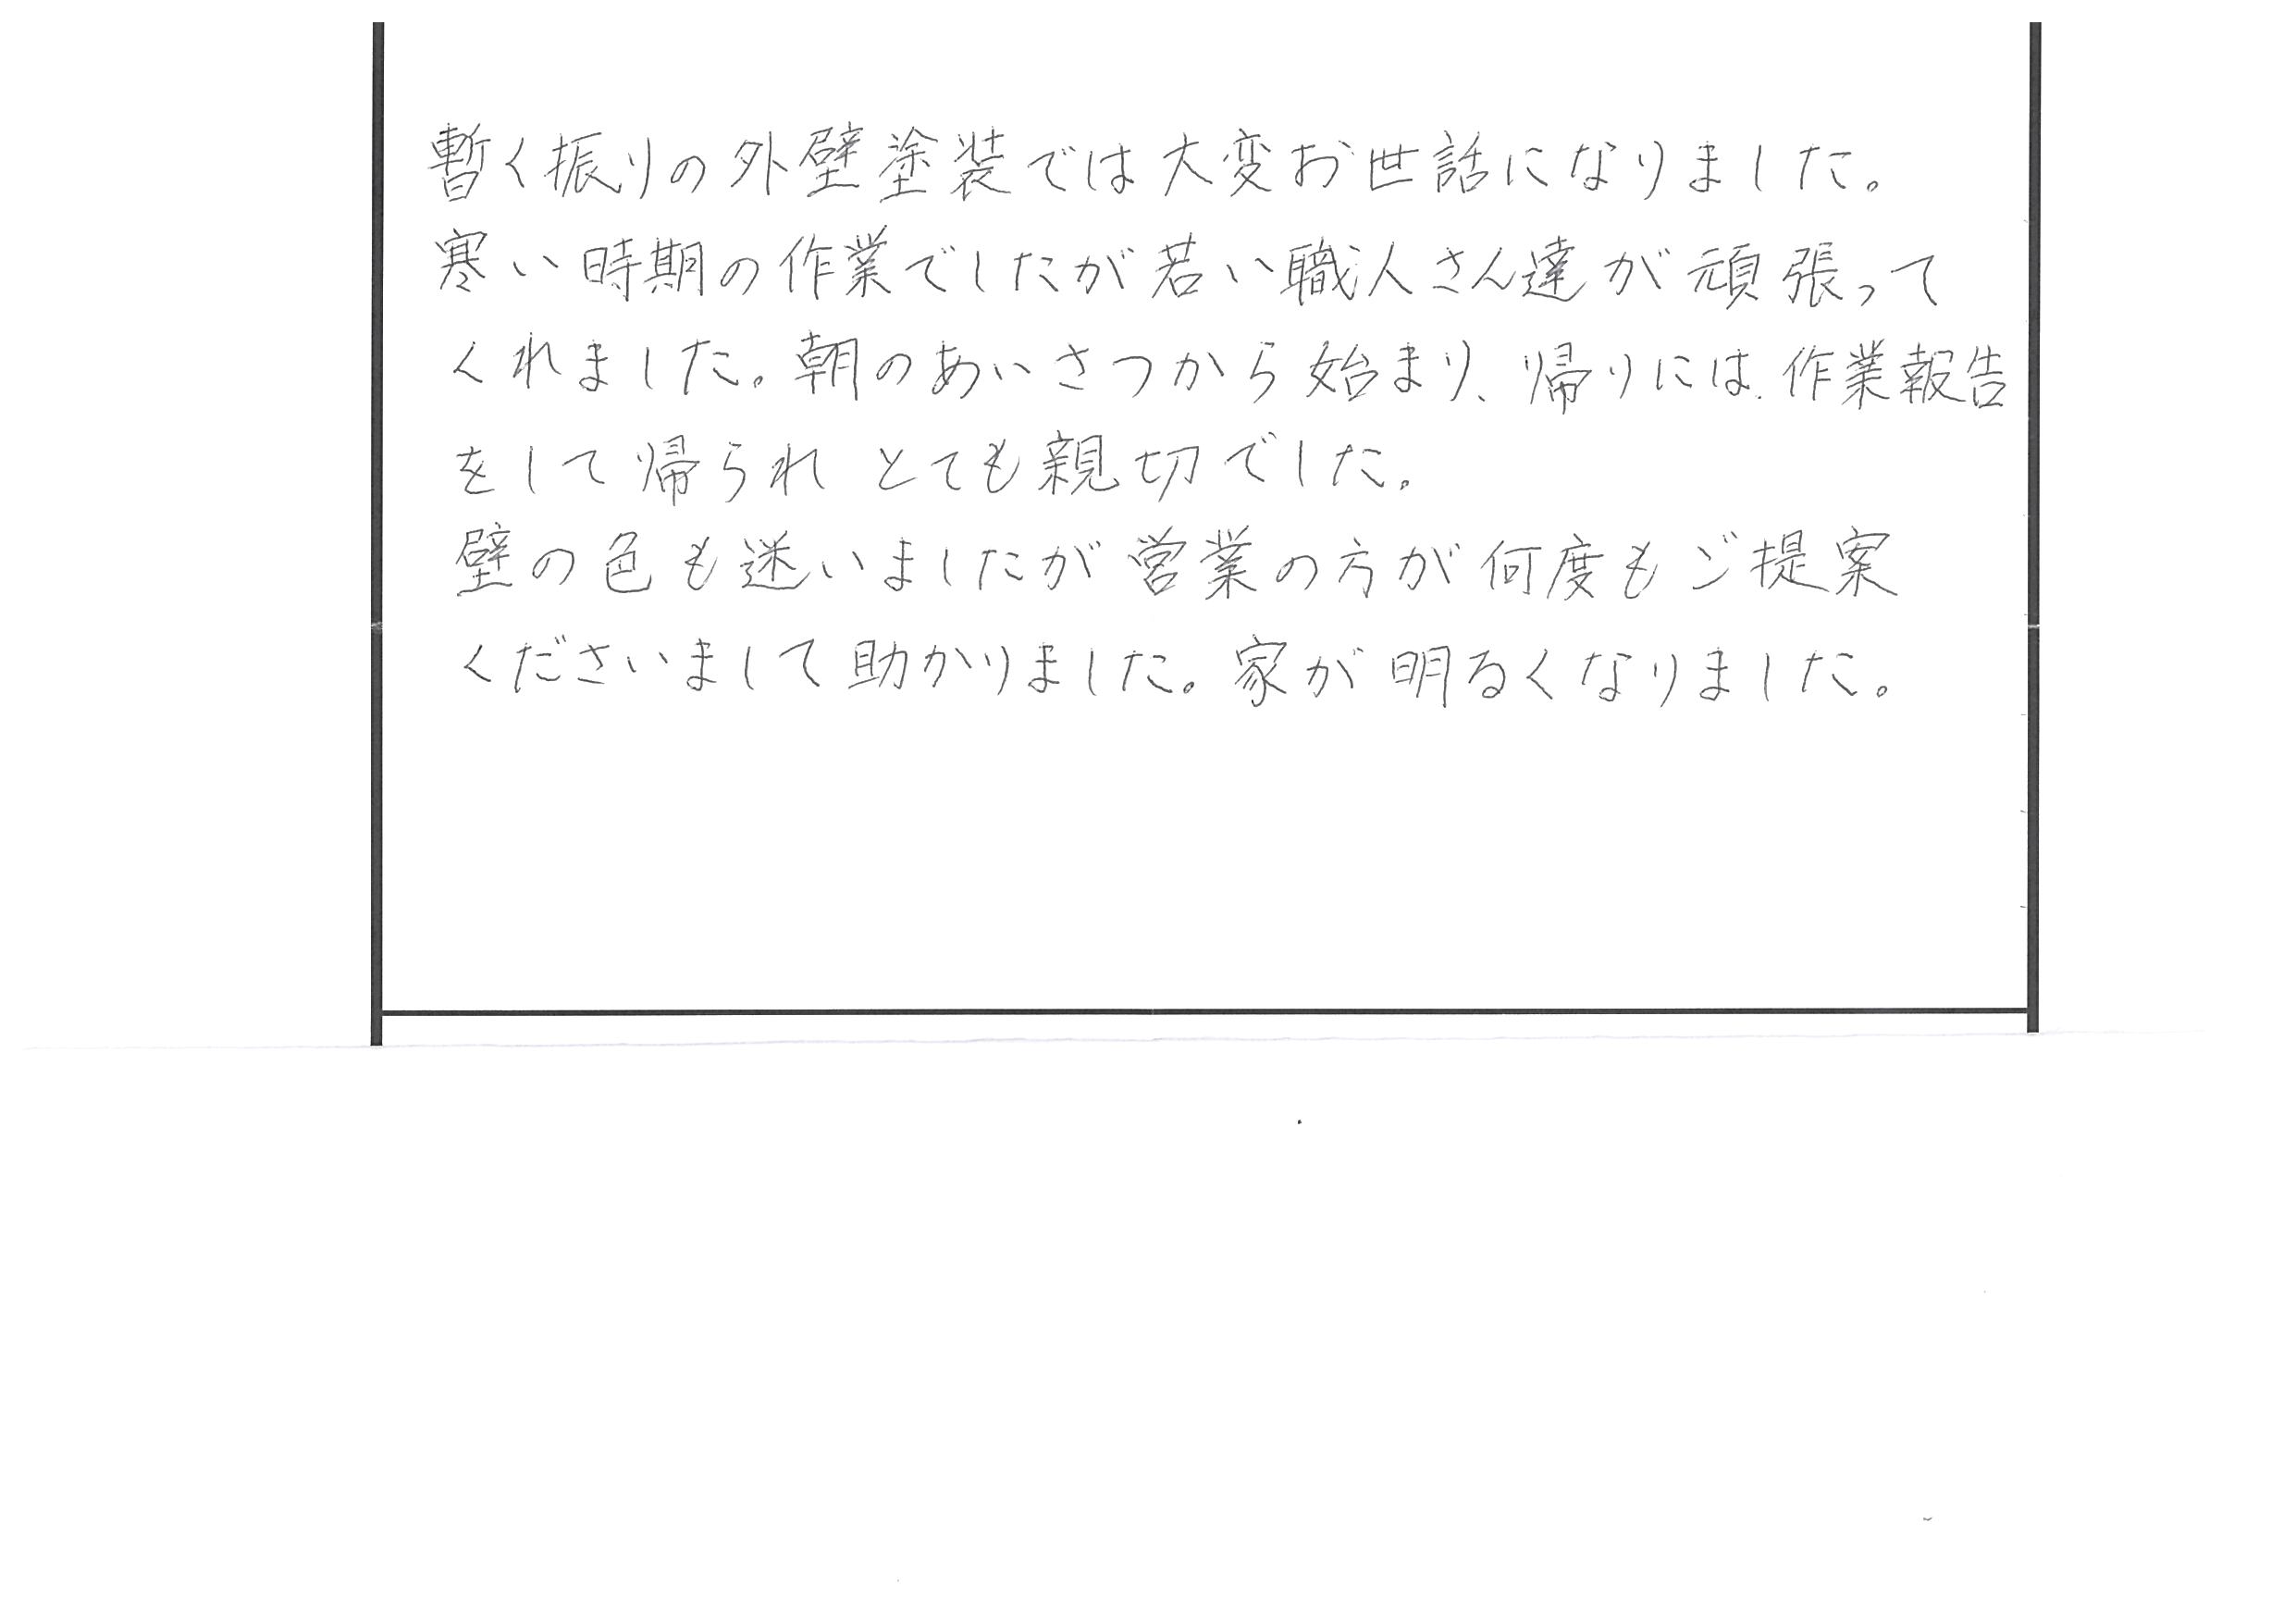 暫く振りの外壁塗装では大変お世話になりました。
寒い時期の作業でしたが若い職人さん達が頑張って
くれました。朝のあいさつから始まり、帰りには、作業報告
をして帰られ とても親切でした。
壁の色も迷いましたが営業の方が何度もご提案
くださいまして助かりました。家が明るくなりました。